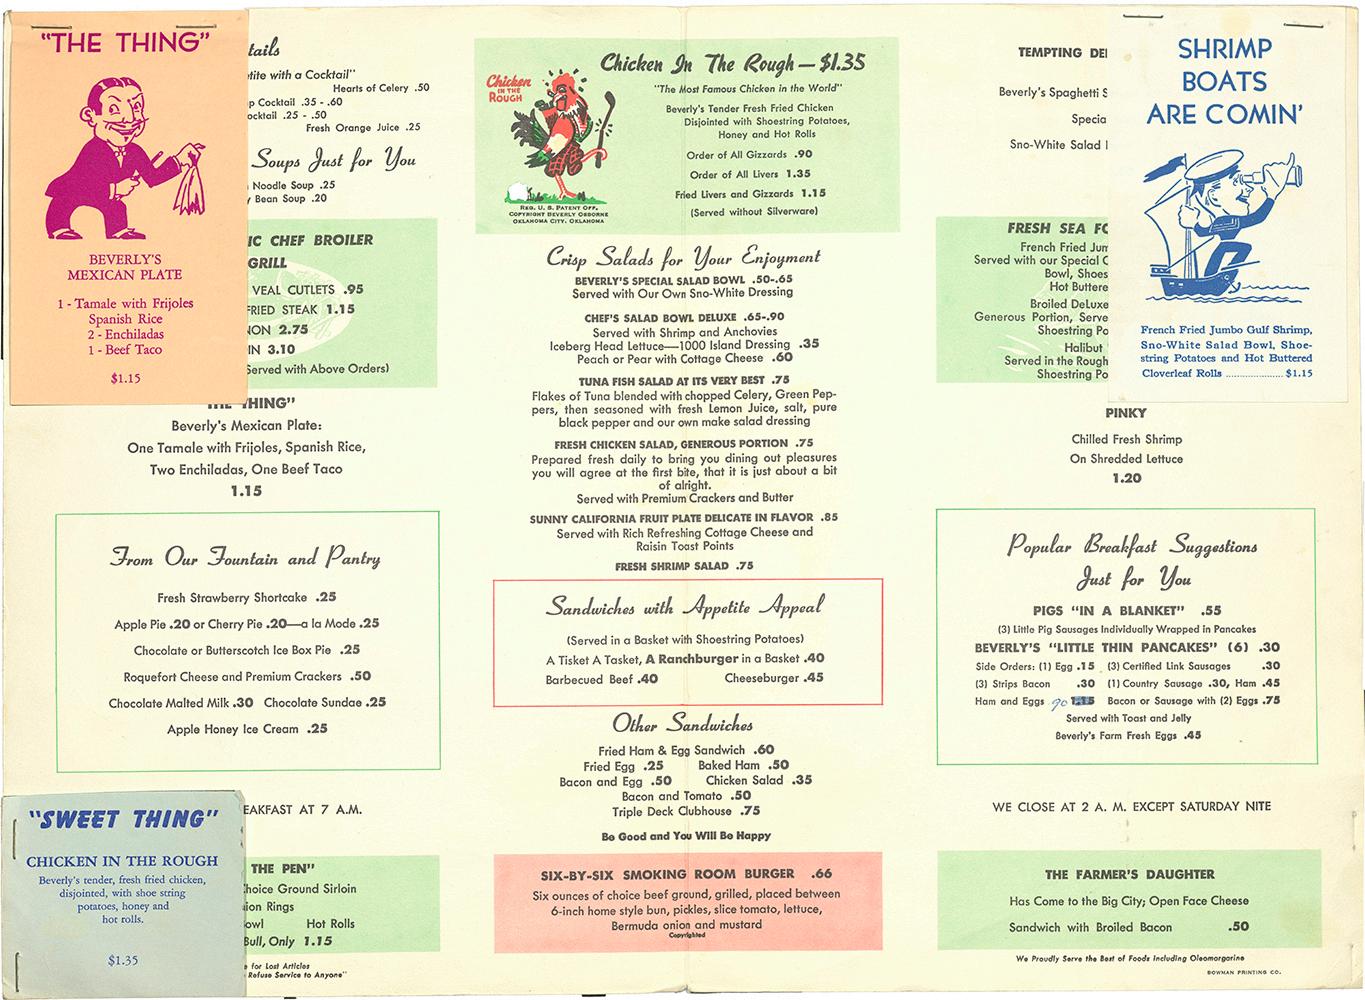 "THE THING"
BEVERLY'S
MEXICAN PLATE
1 - Tamale with Frijoles
Spanish Rice
2 - Enchiladas
1 - Beef Taco
$1.15
tails
tite with a Cocktail"
Hearts of Celery .50
p Cocktail .35 - .60
ocktail .25 - .50
Fresh Orange Juice .25
Soups Just for You
Noodle Soup .25
y Bean Soup .20
IC CHEF BROILER
GRILL
VEAL CUTLETS .95
FRIED STEAK 1.15
NON 2.75
IN 3.10
Served with Above Orders)
THE THING"
Beverly's Mexican Plate:
One Tamale with Frijoles, Spanish Rice,
Two Enchiladas, One Beef Taco
1.15
From Our Fountain and Pantry
Fresh Strawberry Shortcake .25
Apple Pie .20 or Cherry Pie .20—a la Mode .25
Chocolate or Butterscotch Ice Box Pie .25
Roquefort Cheese and Premium Crackers .50
Chocolate Malted Milk .30 Chocolate Sundae .25
Apple Honey Ice Cream .25
EAKFAST AT 7 A.M.
"SWEET THING"
CHICKEN IN THE ROUGH
Beverly's tender, fresh fried chicken,
disjointed, with shoe string
potatoes, honey and
hot rolls.
$1.35
THE PEN"
Choice Ground Sirloin
ion Rings
owl Hot Rolls
Bull, Only 1.15
e for Lost Articles
Refuse Service to Anyone"
Chicken In The Rough — $1.35
Chicken
IN THE
ROUGH
"The Most Famous Chicken in the World"
Beverly's Tender Fresh Fried Chicken
Disjointed with Shoestring Potatoes,
Honey and Hot Rolls
Order of All Gizzards .90
Order of All Livers 1.35
Fried Livers and Gizzards 1.15
(Served without Silverware)
REG. U. S. PATENT OFF.
COPYRIGHT BEVERLY OSBORNE
OKLAHOMA CITY, OKLAHOMA
Crisp Salads for Your Enjoyment
BEVERLY'S SPECIAL SALAD BOWL .50-.65
Served with Our Own Sno-White Dressing
CHEF'S SALAD BOWL DELUXE .65-.90
Served with Shrimp and Anchovies
Iceberg Head Lettuce—1000 Island Dressing .35
Peach or Pear with Cottage Cheese .60
TUNA FISH SALAD AT ITS VERY BEST .75
Flakes of Tuna blended with chopped Celery, Green Pep-
pers, then seasoned with fresh Lemon Juice, salt, pure
black pepper and our own make salad dressing
FRESH CHICKEN SALAD, GENEROUS PORTION .75
Prepared fresh daily to bring you dining out pleasures
you will agree at the first bite, that it is just about a bit
of alright.
Served with Premium Crackers and Butter
SUNNY CALIFORNIA FRUIT PLATE DELICATE IN FLAVOR .85
Served with Rich Refreshing Cottage Cheese and
Raisin Toast Points
FRESH SHRIMP SALAD .75
Sandwiches with Appetite Appeal
(Served in a Basket with Shoestring Potatoes)
A Tisket A Tasket, A Ranchburger in a Basket .40
Barbecued Beef .40 Cheeseburger .45
Other Sandwiches
Fried Ham & Egg Sandwich .60
Fried Egg .25 Baked Ham .50
Bacon and Egg .50 Chicken Salad .35
Bacon and Tomato .50
Triple Deck Clubhouse .75
Be Good and You Will Be Happy
SIX-BY-SIX SMOKING ROOM BURGER .66
Six ounces of choice beef ground, grilled, placed between
6-inch home style bun, pickles, slice tomato, lettuce,
Bermuda onion and mustard
Copyrighted
TEMPTING DE
Beverly's Spaghetti S
Specia
Sno-White Salad
SHRIMP
BOATS
ARE COMIN'
French Fried Jumbo Gulf Shrimp,
Sno-White Salad Bowl, Shoe-
string Potatoes and Hot Buttered
Cloverleaf Rolls ..................... $1.15
FRESH SEA FO
French Fried Jum
Served with our Special C
Bowl, Shoes
Hot Buttere
Broiled DeLuxe
Generous Portion, Serve
Shoestring Po
Halibut
Served in the Rough
Shoestring Po
PINKY
Chilled Fresh Shrimp
On Shredded Lettuce
1.20
Popular Breakfast Suggestions
Just for You
PIGS "IN A BLANKET" .55
(3) Little Pig Sausages Individually Wrapped in Pancakes
BEVERLY'S "LITTLE THIN PANCAKES" (6) .30
Side Orders: (1) Egg .15 (3) Certified Link Sausages .30
(3) Strips Bacon .30 (1) Country Sausage .30, Ham .45
Ham and Eggs 90 1.15 Bacon or Sausage with (2) Eggs .75
Served with Toast and Jelly
Beverly's Farm Fresh Eggs .45
WE CLOSE AT 2 A. M. EXCEPT SATURDAY NITE
THE FARMER'S DAUGHTER
Has Come to the Big City; Open Face Cheese
Sandwich with Broiled Bacon .50
We Proudly Serve the Best of Foods Including Oleomargarine
BOWMAN PRINTING CO.